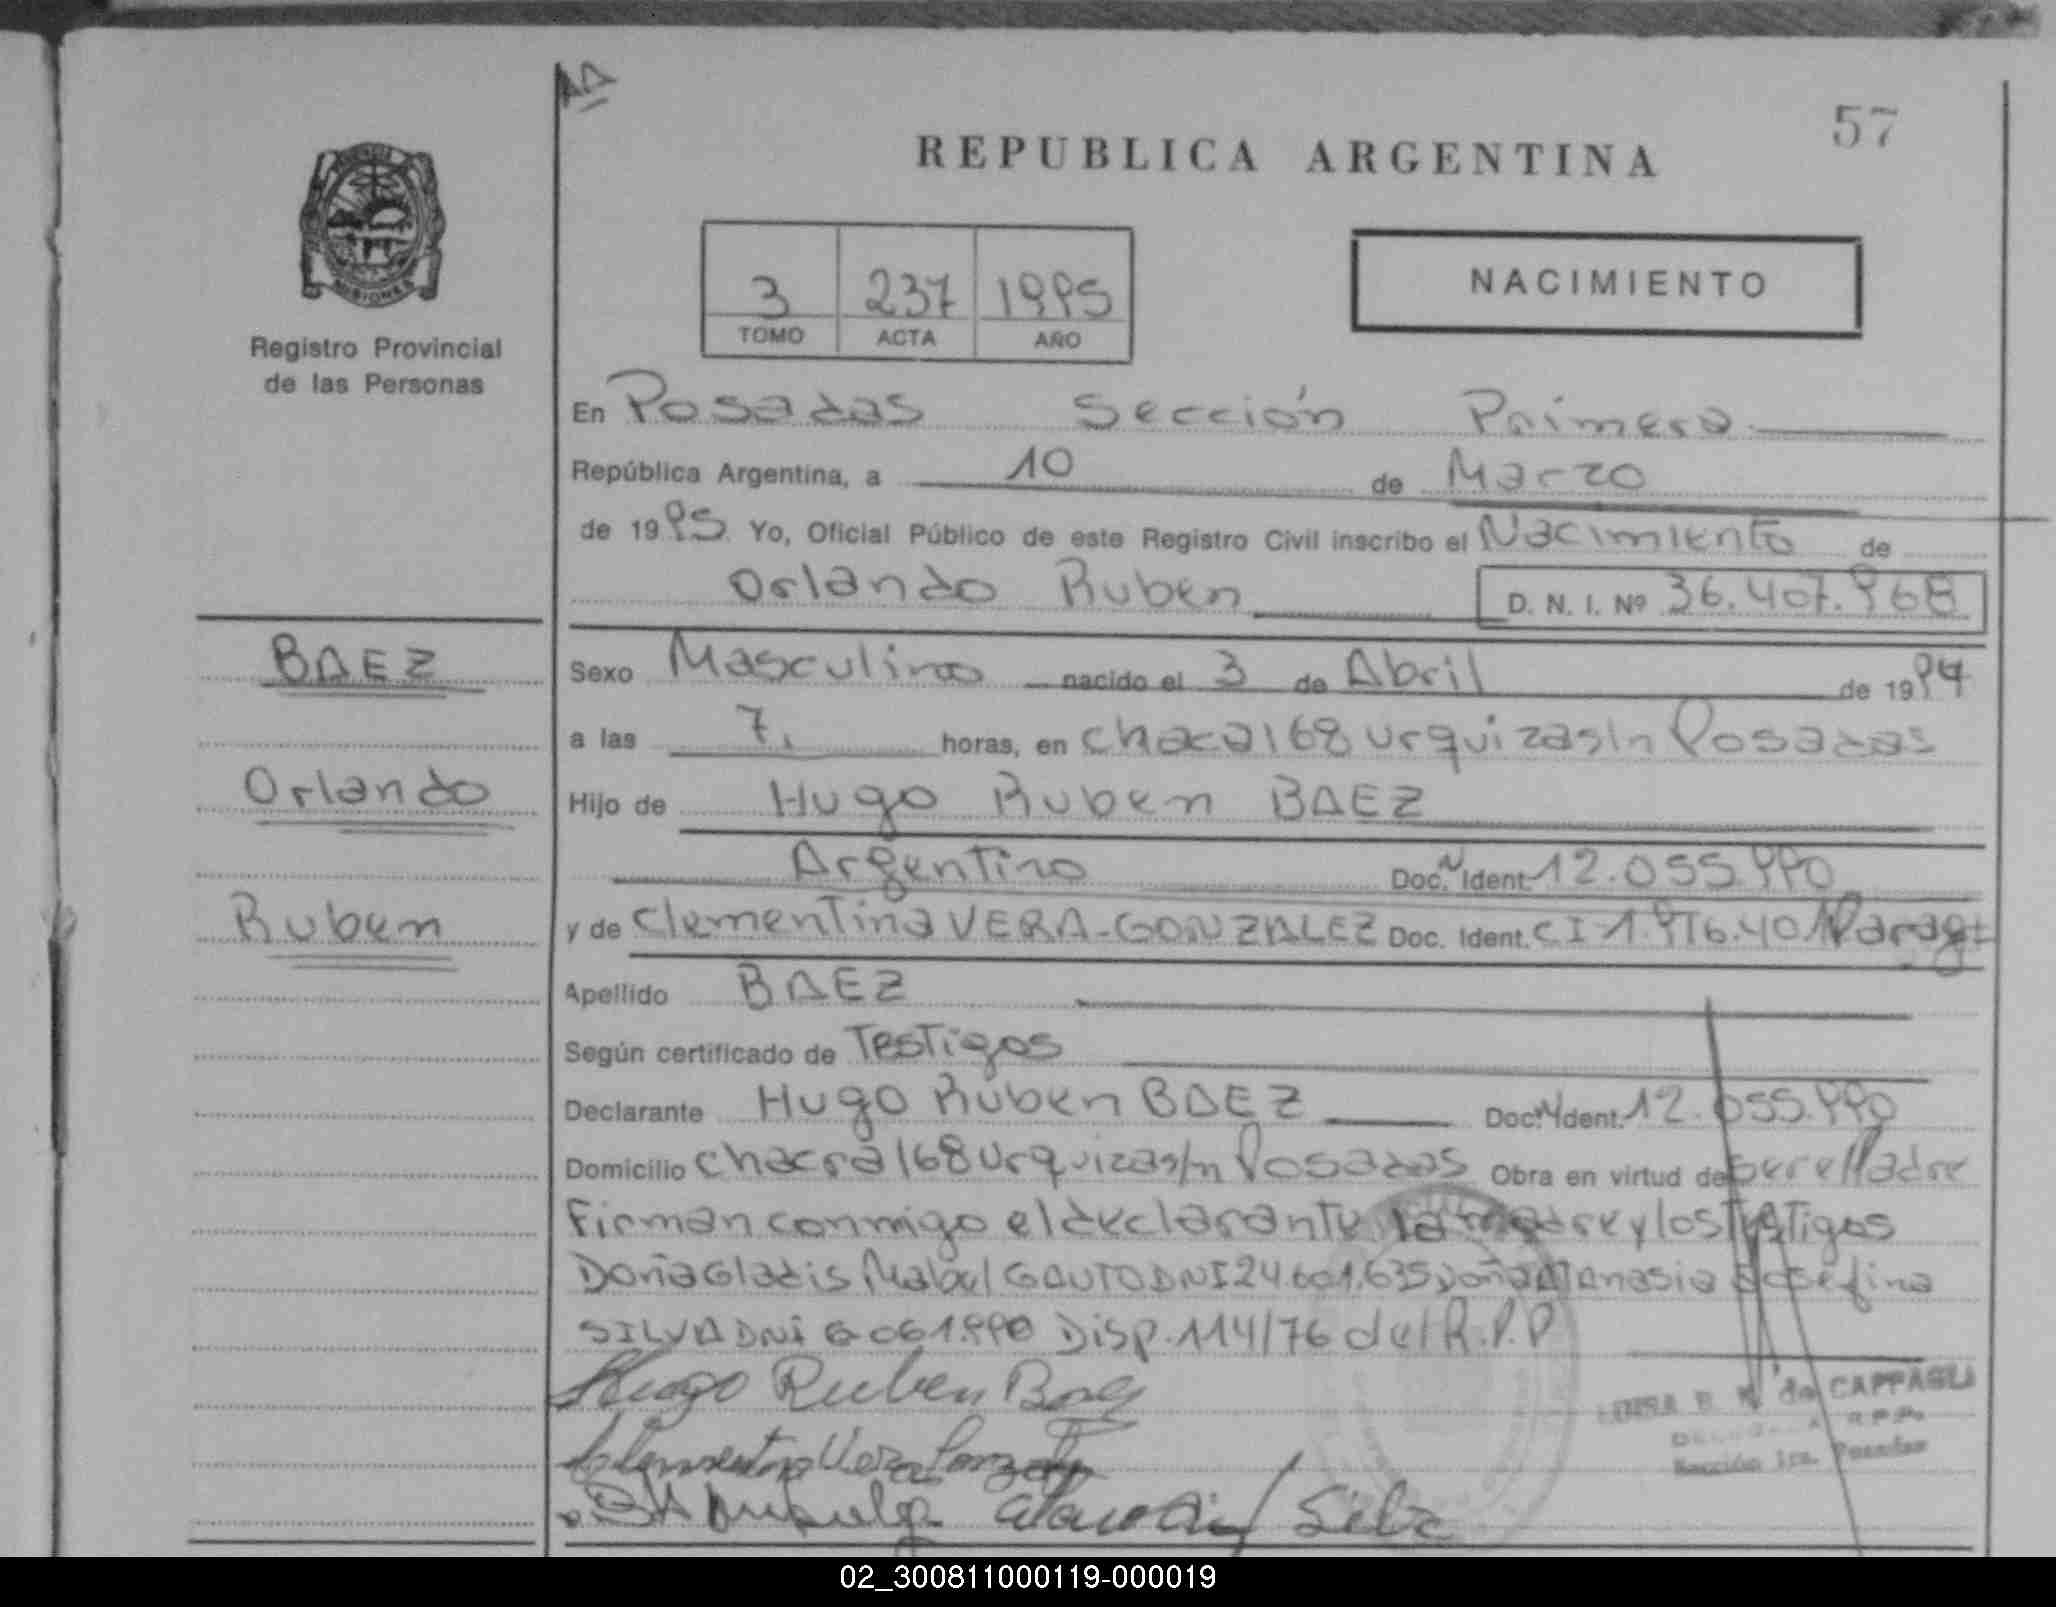 57
REPUBLICA ARGENTINA
MISIONES
Registro Provincial
de las Personas
3 237 1995
TOMO ACTA AÑO
NACIMIENTO
En Posadas Sección Primera
República Argentina, a 10 de Marzo
de 1995 Yo, Oficial Público de este Registro Civil inscribo el Nacimiento de
Orlando Ruben D. N. I. Nº 36.407.968
BAEZ
Orlando
Ruben
Sexo Masculino nacido el 3 de Abril de 1994
a las 7. horas, en chacra 168 urquiza s/n Posadas
Hijo de Hugo Ruben BAEZ
Argentino Doc. Ident. 12.055.990
y de Clementina VERA-GONZALEZ Doc. Ident. CI 1.976.401 Parag
Apellido BAEZ
Según certificado de Testigos
Declarante Hugo Ruben BAEZ Doc. Ident. 12.055.990
Domicilio chacra 168 urquiza s/n Posadas Obra en virtud de ser el Padre
Firman conmigo el declarante la madre y los Testigos
Doña Gladis Mabel GAUTO DNI 24.601.635 y Doña Atanasia Josefina
SILVA DNI 6.061.990 Disp. 114/76 del R.P.P
Hugo Ruben Baez
Clementina Vera Gonzalez
Silva
de CAPPAGLI
Sección 1ra. Posadas
02_300811000119-000019